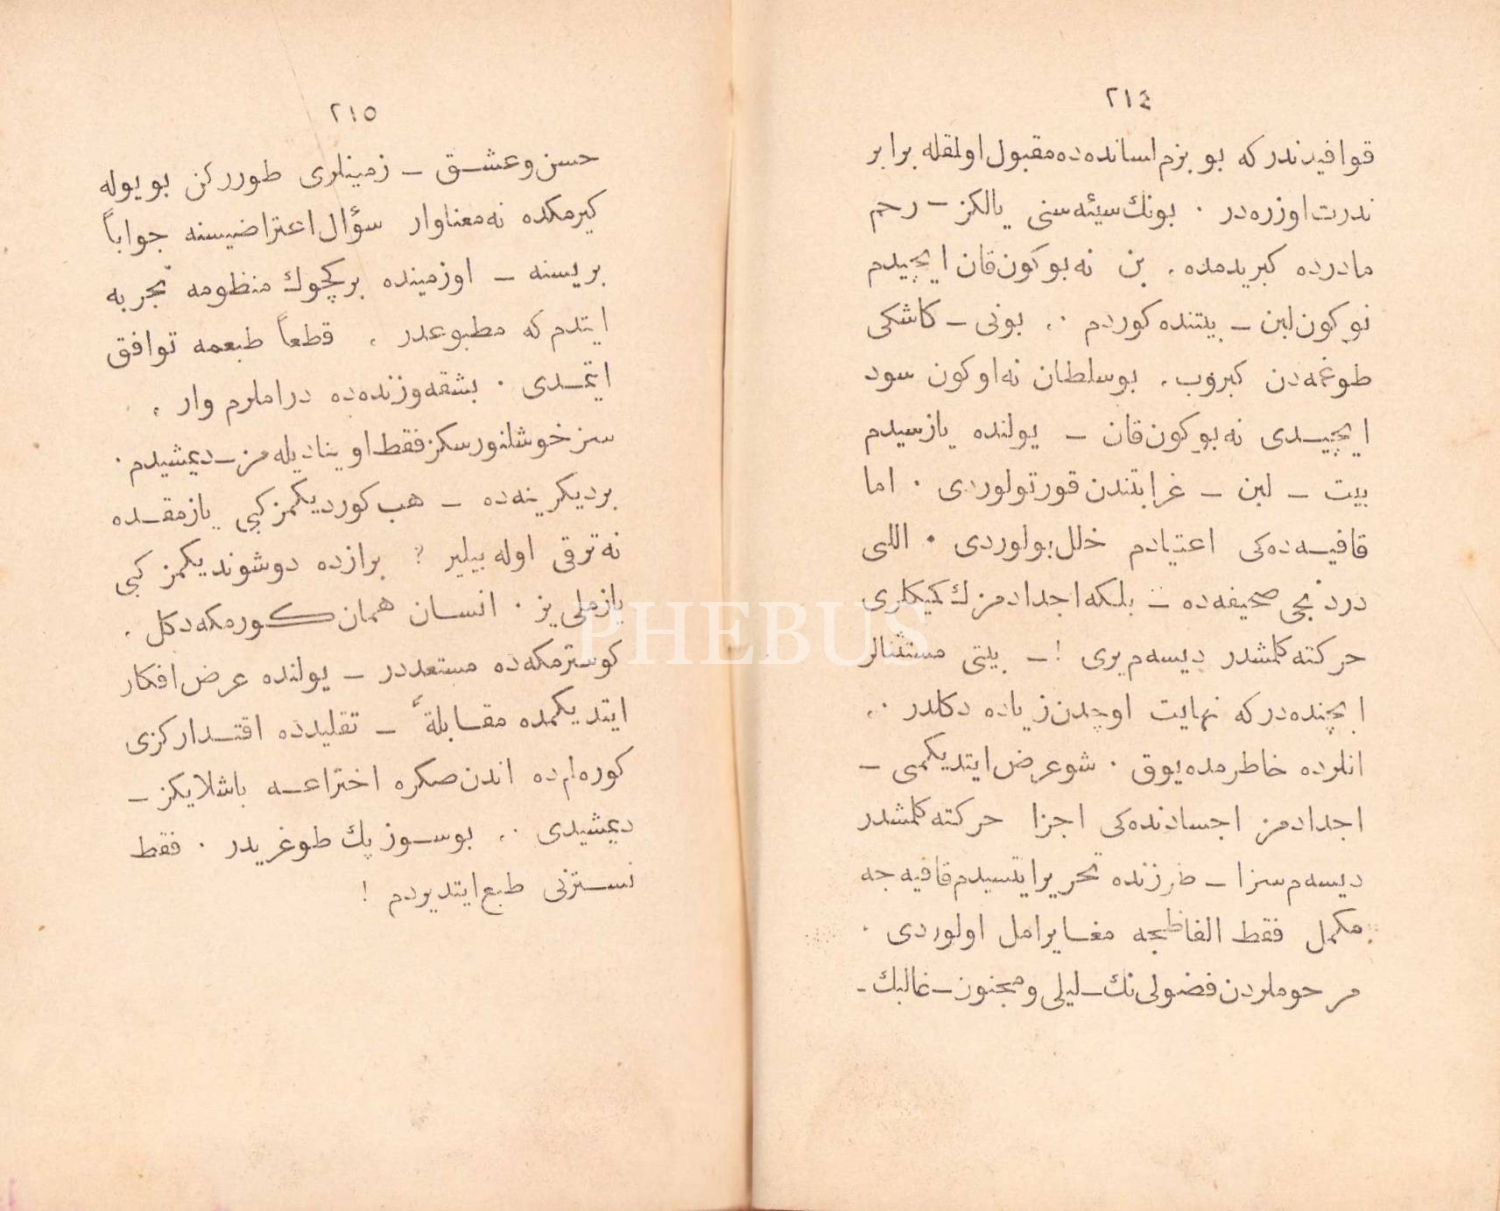 ٢١٤
قوافيدندر كه بو بزم لسانده ده مقبول اولمقله برابر
ندرت اوزره در . بونك سيئه سنى يالكز – رحم
مادرده كبريدمده، بن نه بوكون قان ايچيدم
نوكون لبن – بيتنده كوردم .، بونى – كاشكى
طوغمه دن كبروب، بو سلطان نه اوكون سود
ايچيدى نه بوكون قان – يولنده يازسيدم
بيت – لبن – غرابتندن قورتولوردى . اما
قافيه ده كى اعتيادم خلل بولوردى . اللى
دردنجى صحيفه ده – بلكه اجدادمزك كميكلرى
حركته كلمشدر ديسه م يرى ! – بيتى مستثنالر
ايچنده در كه نهايت اوچدن زياده دكلدر .،
انلرده خاطرمده يوق . شو عرض ايتديكمى –
اجدادمز اجسادنده كى اجزا حركته كلمشدر
ديسه م سزا – طرزنده تحرير ايتسيدم قافيه جه
مكمل فقط الفاظجه مغاير امل اولوردى .
مرحوملردن فضولى نك – ليلى و مجنون – غالبك –
٢١٥
حسن و عشق – زمينلرى طورركن بو يوله
كيرمكده نه معنا وار سؤال اعتراضيسنه جواباً
بريسنه – او زمينده بر كچوك منظومه تجربه
ايتدم كه مطبوعدر ، قطعاً طبعمه توافق
ايتمدى . بشقه وزنده ده دراملرم وار ،
سز خوشلنورسكز فقط اوينادیله مز – ديمشيدم .
بر ديكرينه ده – هب كورديكمز كبى يازمقده
نه ترقى اوله بيلير ؟ برازده دوشونديكمز كبى
يازملى يز . انسان همان كورمكه دكل .
كوسترمكه ده مستعددر – يولنده عرض افكار
ايتديكمده مقابلةً – تقليدده اقتداركزى
كوره لم ده اندن صكره اختراعه باشلايكز –
ديمشيدى .، بو سوز پك طوغريدر . فقط
نسترنى طبع ايتديردم !